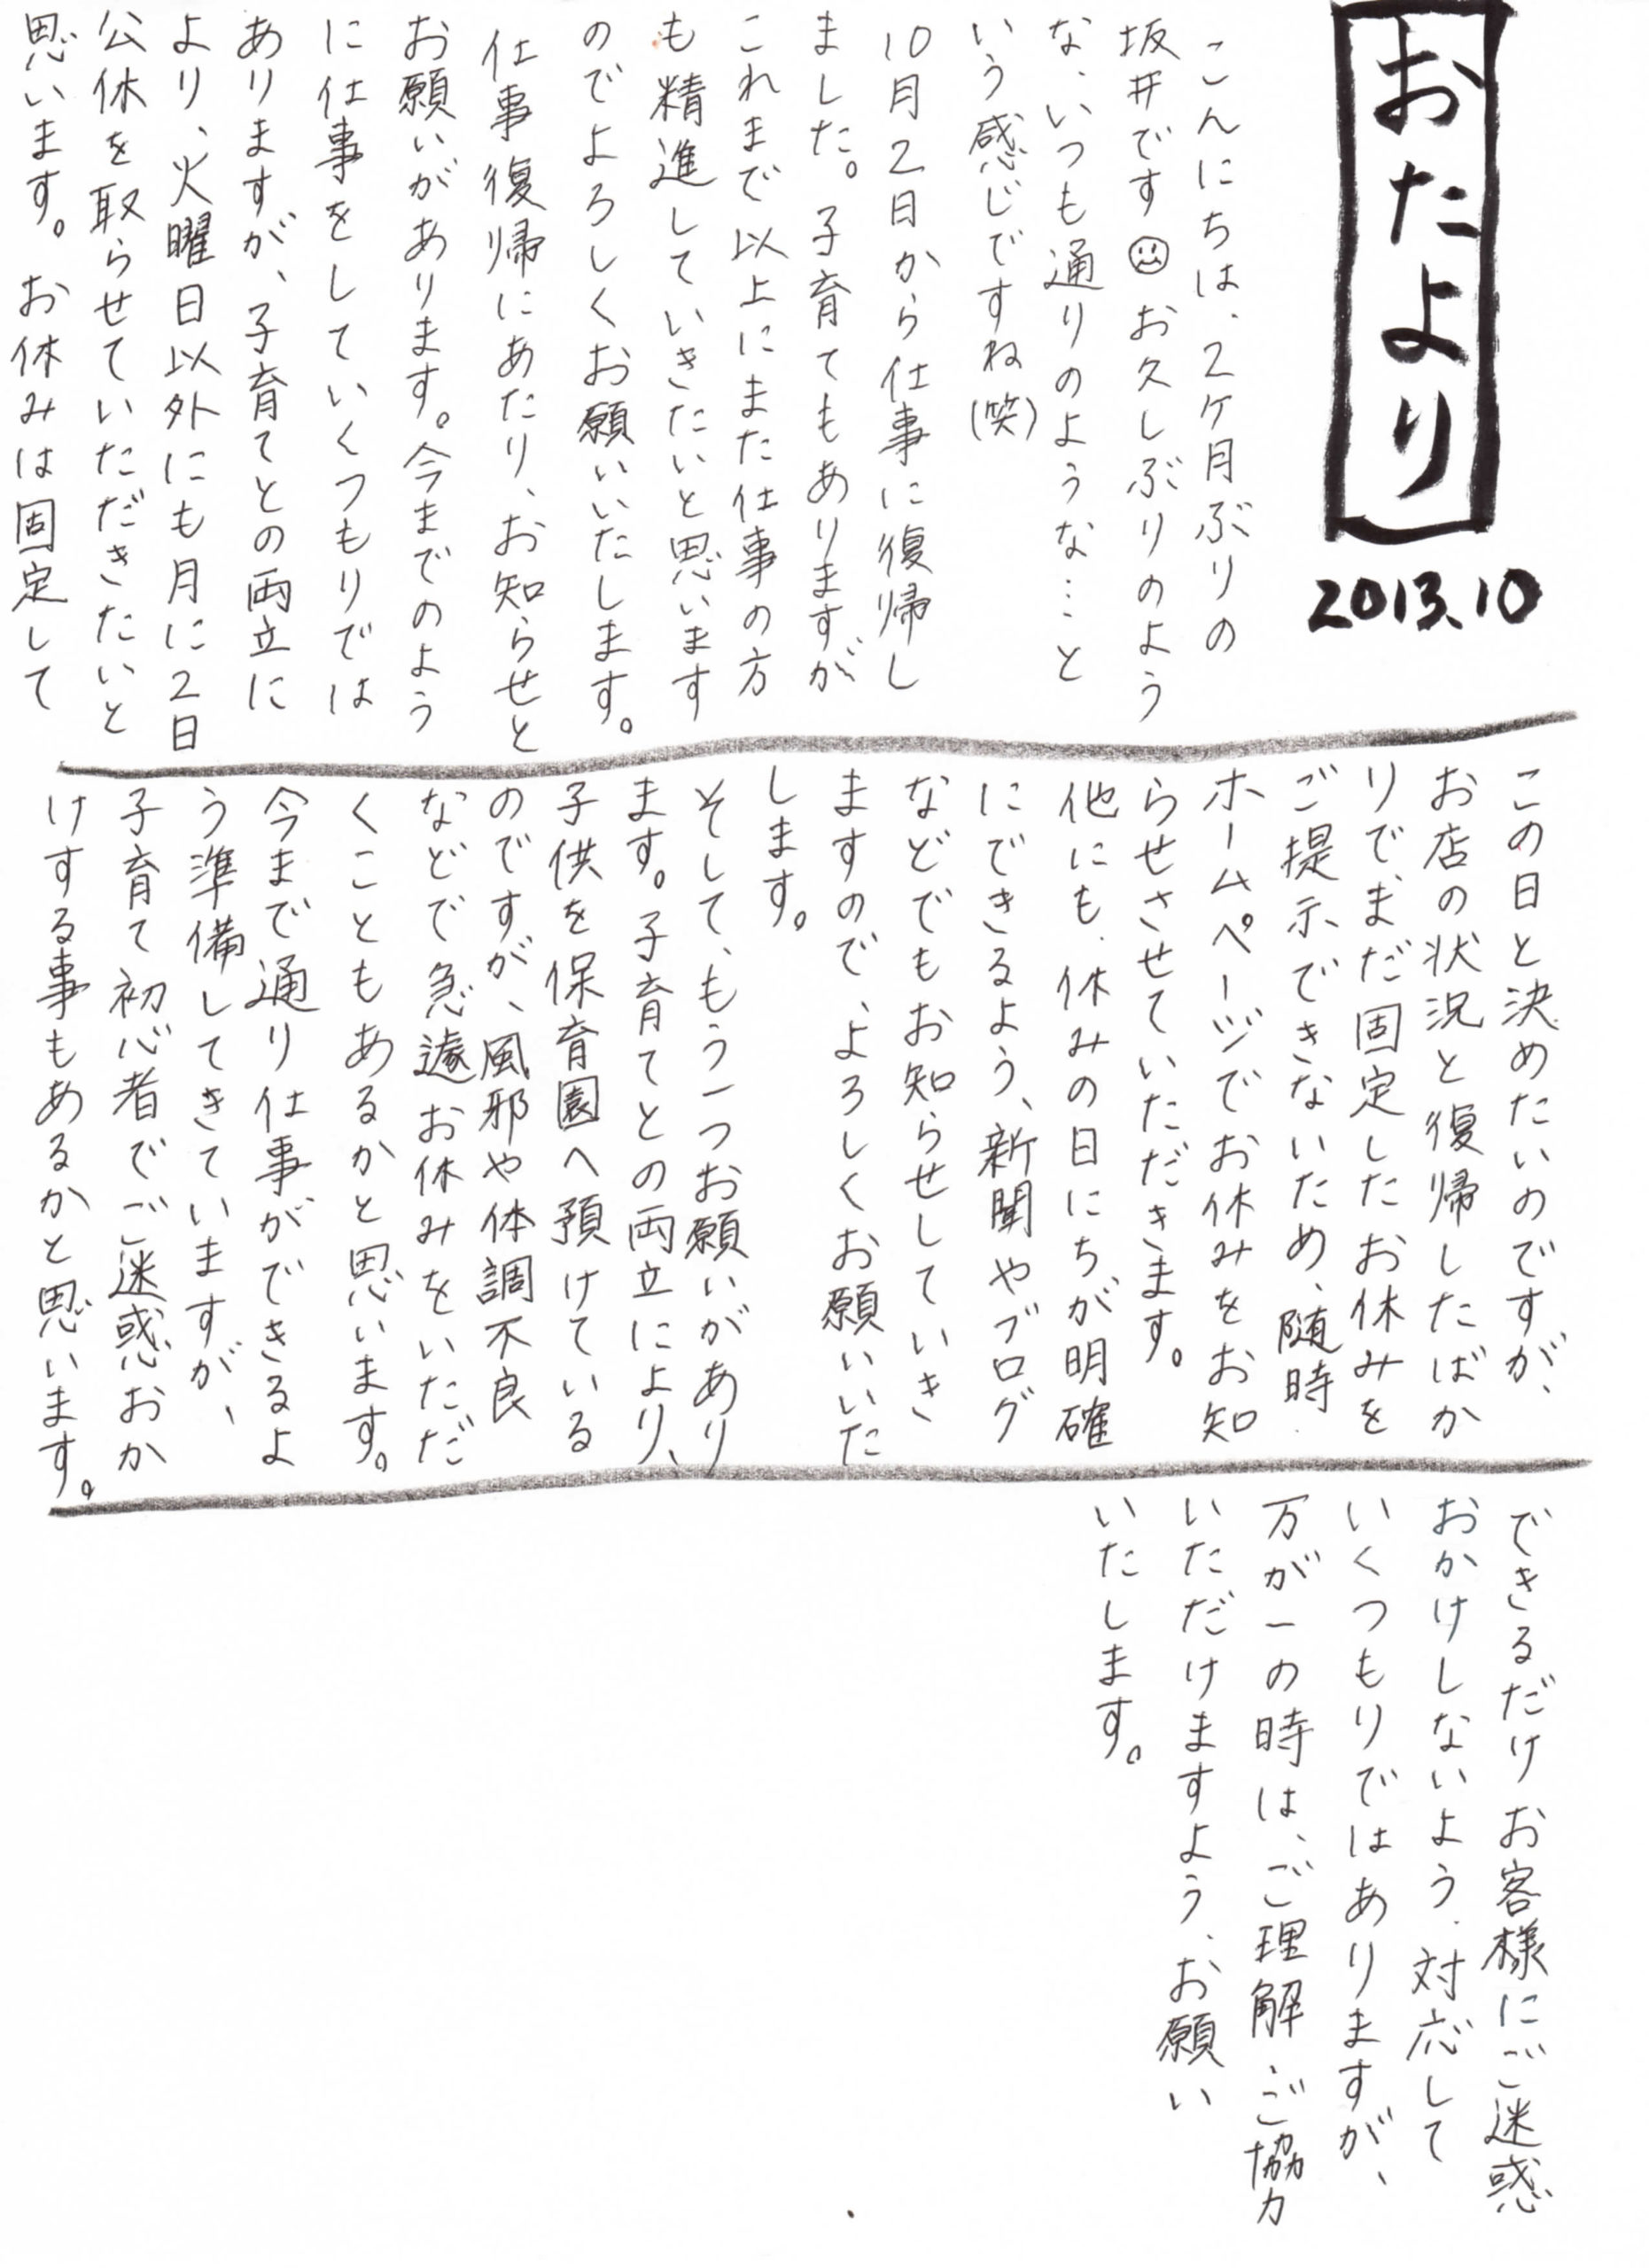 おたより
2013.10
こんにちは、2ケ月ぶりの
坂井です☺お久しぶりのよう
な、いつも通りのような…と
いう感じですね(笑)
10月2日から仕事に復帰し
ました。子育てもありますが
これまで以上にまた仕事の方
も精進していきたいと思います
のでよろしくお願いいたします。
仕事復帰にあたり、お知らせと
お願いがあります。今までのよう
に仕事をしていくつもりでは
ありますが、子育てとの両立に
より、火曜日以外にも月に2日
公休を取らせていただきたいと
思います。お休みは固定して
この日と決めたいのですが、
お店の状況と復帰したばか
りで、まだ固定したお休みを
ご提示できないため、随時
ホームページでお休みをお知
らせさせていただきます。
他にも、休みの日にちが明確
にできるよう、新聞やブログ
などでもお知らせしていき
ますので、よろしくお願いいた
します。
そして、もう一つお願いがあり
ます。子育てとの両立により、
子供を保育園へ預けている
のですが、風邪や体調不良
などで急遽お休みをいただ
くこともあるかと思います。
今まで通り仕事ができるよ
う準備してきていますが、
子育て初心者でご迷惑おか
けする事もあるかと思います。
できるだけお客様にご迷惑
おかけしないよう、対応して
いくつもりではありますが、
万が一の時は、ご理解、ご協力
いただけますよう、お願い
いたします。